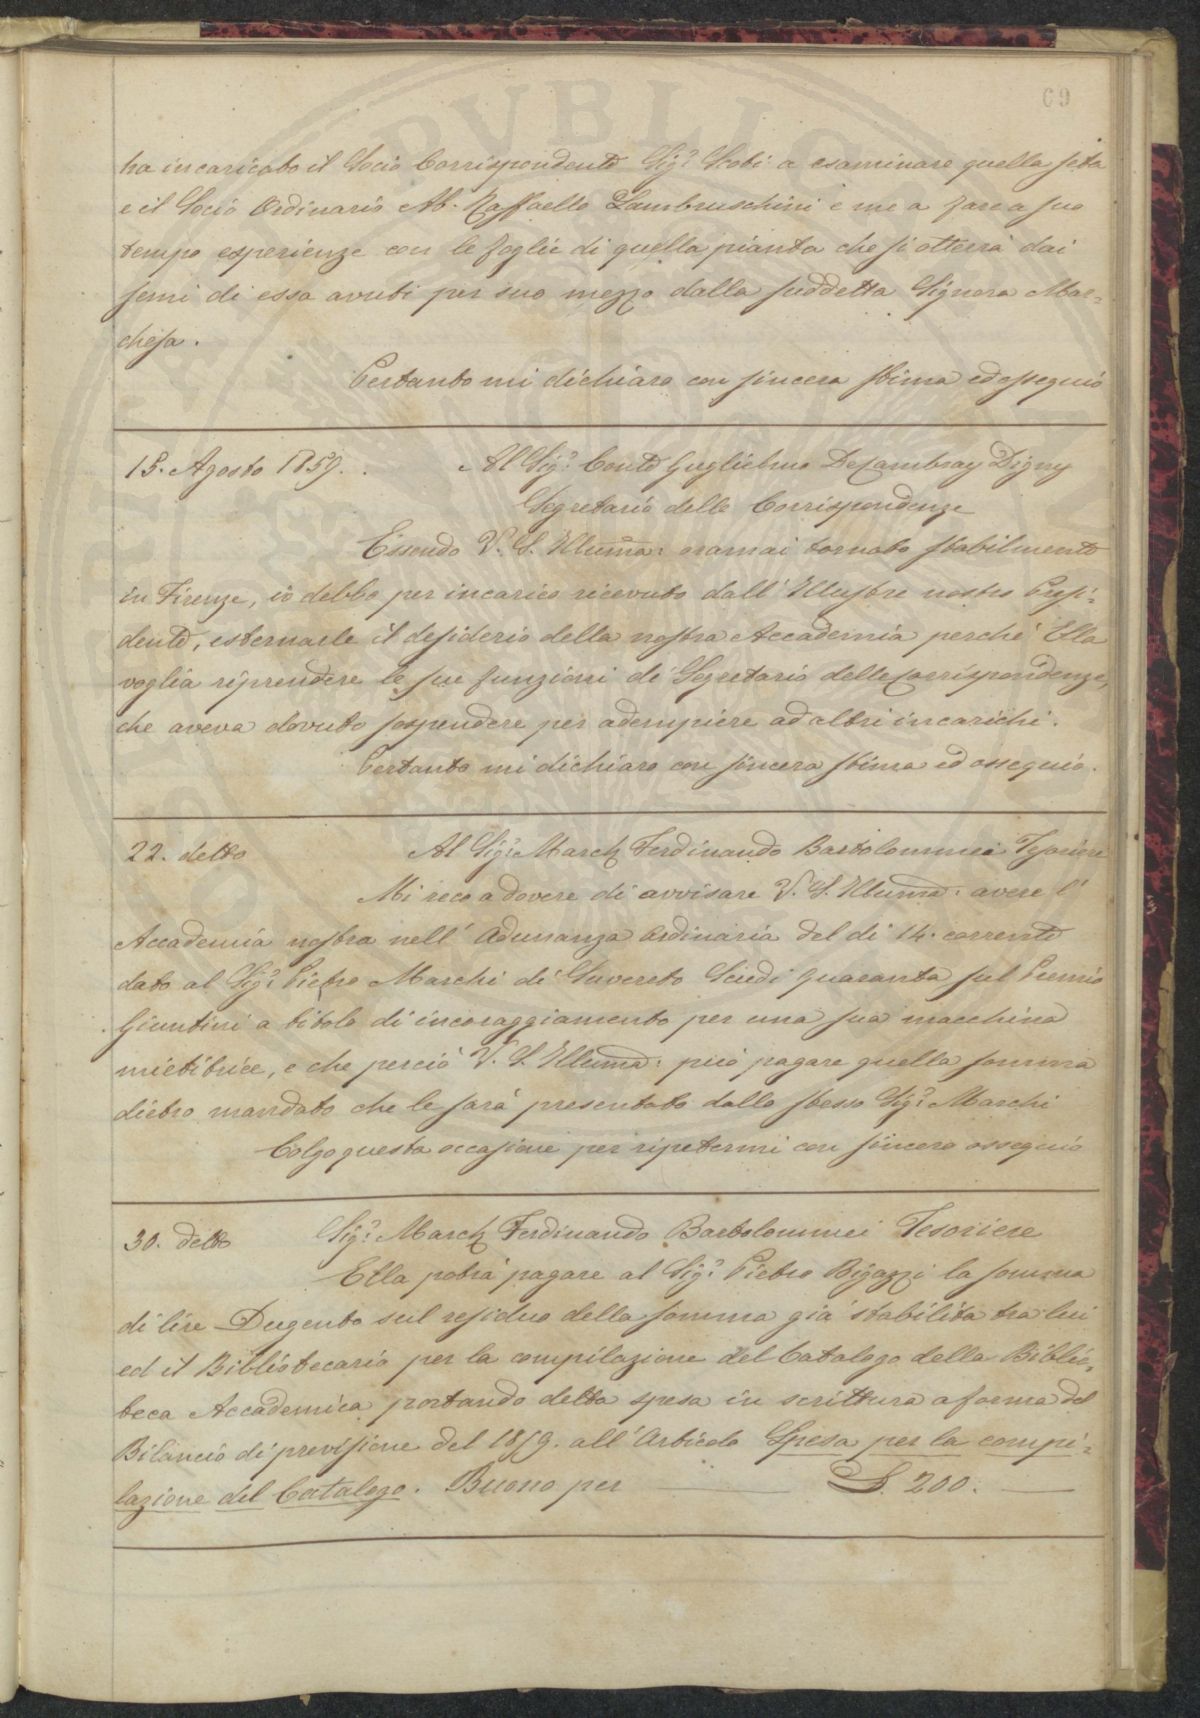 69
ha incaricato il Socio Corrispondente Sig.r Scoti a esaminare quella seta
e il Socio Ordinario Ab. Raffaello Lambruschini e me a fare a suo
tempo esperienze con le foglie di quella pianta che si otterrà dai
semi di essa avuti per suo mezzo dalla suddetta Signora Mar=
chesa.
Pertanto mi dichiaro con sincera stima ed ossequio
15. Agosto 1859. . Al Sig.r Conte Guglielmo De Cambray Digny
Segretario delle Corrispondenze
Essendo V. S. Illuma: oramai tornato stabilmente
in Firenze, io debbo per incarico ricevuto dall' Illustre nostro Presi=
dente, esternarle il desiderio della nostra Accademia perchè Ella
voglia riprendere le sue funzioni di Segretario delle corrispondenze,
che aveva dovuto sospendere per adempiere ad altri incarichi.
Pertanto mi dichiaro con sincera stima ed ossequio.
22. detto Al Sig.r March. Ferdinando Bartolommei Tesoriere
Mi reco a dovere di avvisare V. S. Illuma: avere l'
Accademia nostra nell' adunanza ordinaria del dì 14. corrente
dato al Sig.r Pietro Marchi di Suvereto Scudi quaranta sul Premio
Giuntini a titolo di incoraggiamento per una sua macchina
mietitrice, e che perciò V. S. Illuma: può pagare quella somma
dietro mandato che le sarà presentato dallo stesso Sig.r Marchi
Colgo questa occasione per ripetermi con sincero ossequio
30. detto Sig.r March. Ferdinando Bartolommei Tesoriere
Ella potrà pagare al Sig.r Pietro Bigazzi la somma
di lire Dugento sul residuo della somma già stabilita tra lui
ed il Bibliotecario per la compilazione del Catalogo della Biblio=
teca Accademica portando detta spesa in scrittura a forma del
Bilancio di previsione del 1859. all' Articolo Spesa per la compi=
lazione del Catalogo. Buono per L. 200.